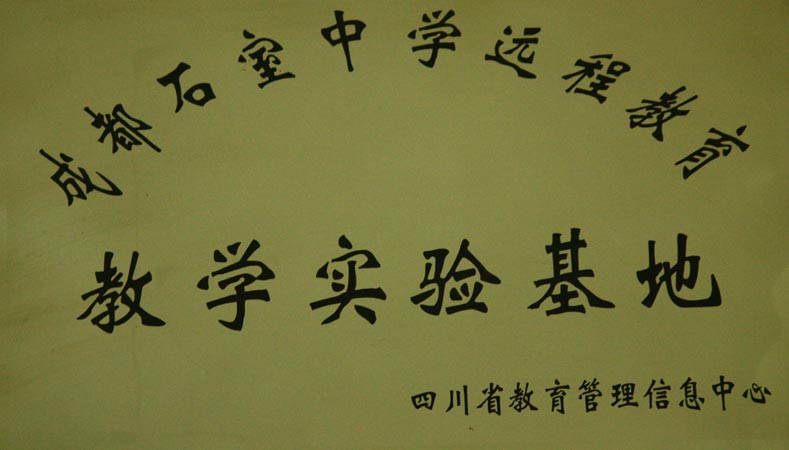 成都石室中学远程教育
教学实验基地
四川省教育管理信息中心